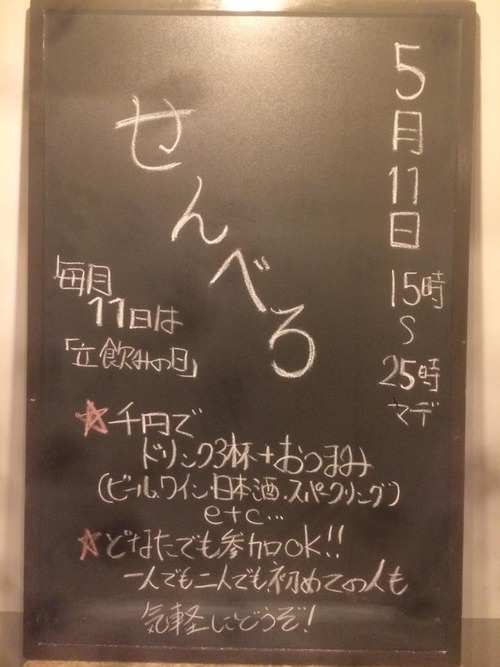 5月11日
15時
〜
25時
マデ
せんべろ
毎月
11日は
「立飲みの日」
☆千円で
ドリンク3杯+おつまみ
(ビール、ワイン、日本酒、スパークリング)
etc…
☆どなたでも参加ok!!
一人でも二人でも初めての人も
気軽にどうぞ!